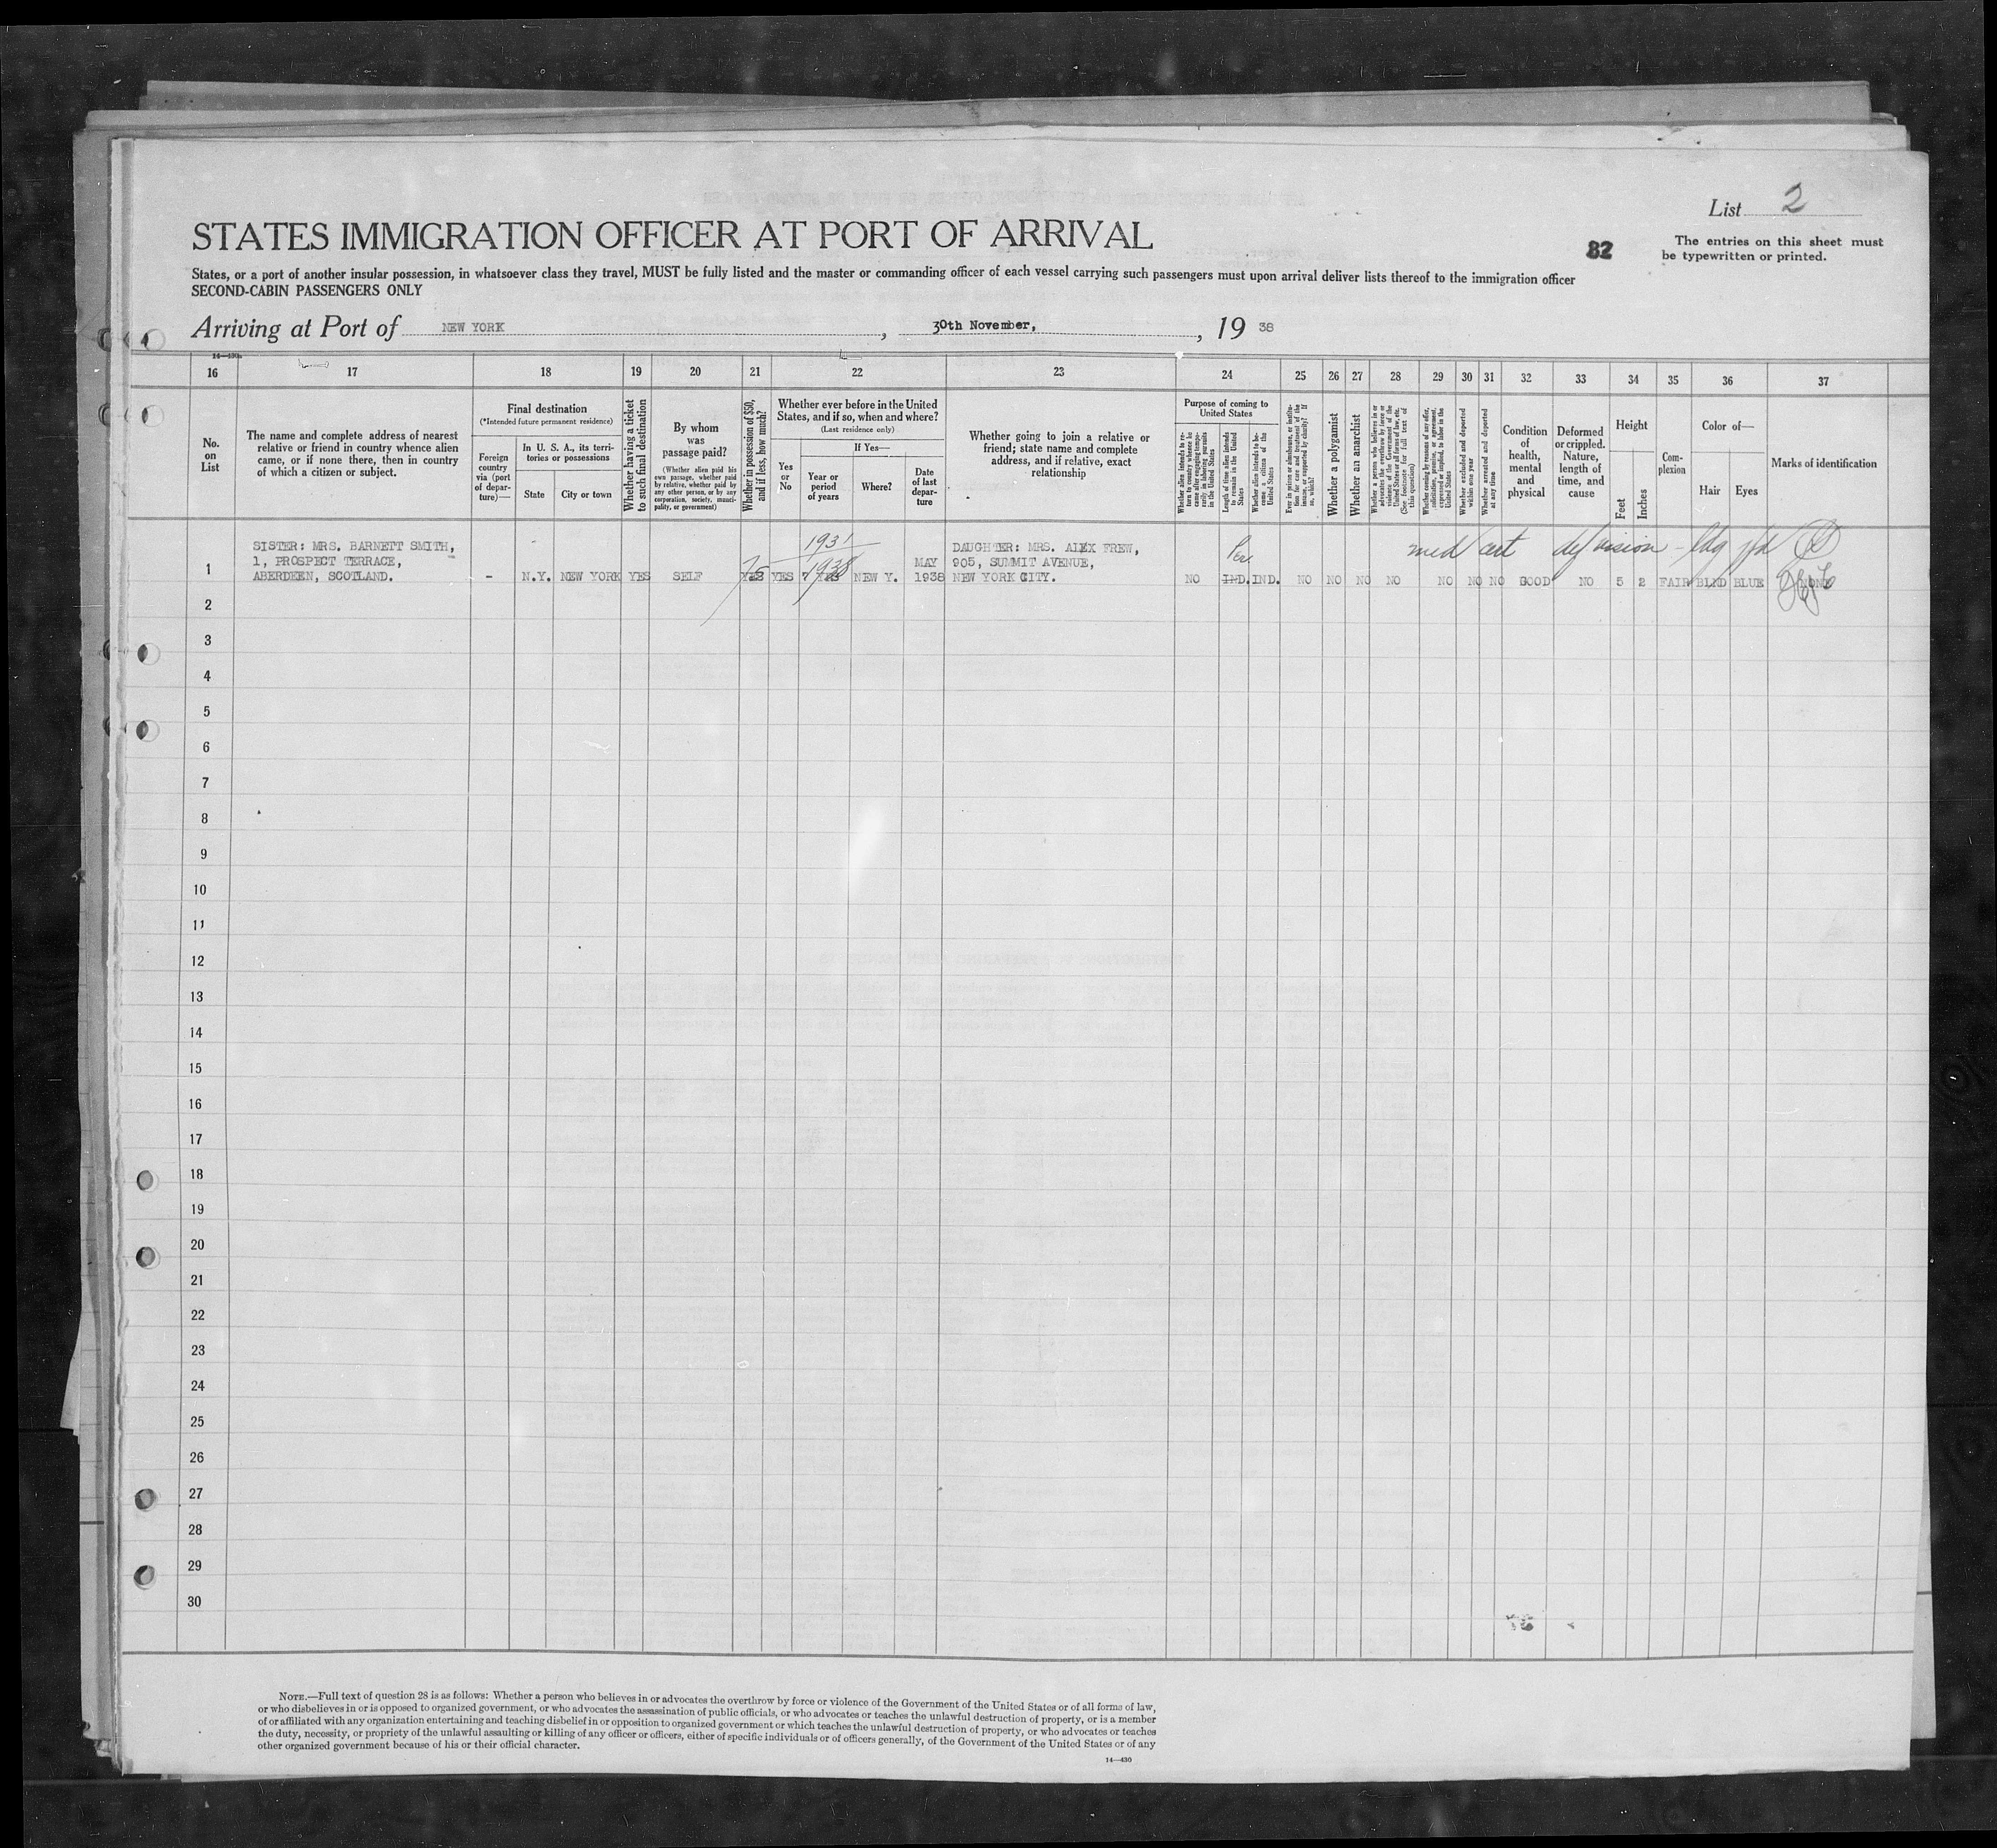 List 2
STATES IMMIGRATION OFFICER AT PORT OF ARRIVAL
82
The entries on this sheet must
be typewritten or printed.
States, or a port of another insular possession, in whatsoever class they travel, MUST be fully listed and the master or commanding officer of each vessel carrying such passengers must upon arrival deliver lists thereof to the immigration officer
SECOND-CABIN PASSENGERS ONLY
Arriving at Port of NEW YORK, 30th November, 19 38
14—430a
16 17 18 19 20 21 22 23 24 25 26 27 28 29 30 31 32 33 34 35 36 37
No.
on
List
The name and complete address of nearest
relative or friend in country whence alien
came, or if none there, then in country
of which a citizen or subject.
Final destination
(*Intended future permanent residence)
Foreign
country
via (port
of depar-
ture)—
In U. S. A., its terri-
tories or possessions
State
City or town
Whether having a ticket
to such final destination
By whom
was
passage paid?
(Whether alien paid his
own passage, whether paid
by relative, whether paid by
any other person, or by any
corporation, society, munici-
pality, or government)
Whether in possession of $50,
and if less, how much?
Whether ever before in the United
States, and if so, when and where?
(Last residence only)
Yes
or
No
If Yes—
Year or
period
of years
Where?
Date
of last
depar-
ture
Whether going to join a relative or
friend; state name and complete
address, and if relative, exact
relationship
Purpose of coming to
United States
Whether alien intends to re-
turn to country whence he
came after engaging tempo-
rarily in laboring pursuits
in the United States
Length of time alien intends
to remain in the United
States
Whether alien intends to be-
come a citizen of the
United States
Ever in prison or almshouse, or institu-
tion for care and treatment of the
insane, or supported by charity? If
so, which?
Whether a polygamist
Whether an anarchist
Whether a person who believes in or
advocates the overthrow by force or
violence of the Government of the
United States or of all forms of law, etc.
(See footnote for full text of
this question)
Whether coming by reasons of any offer,
solicitation, promise, or agreement,
expressed or implied, to labor in the
United States
Whether excluded and deported
within one year
Whether arrested and deported
at any time
Condition
of
health,
mental
and
physical
Deformed
or crippled.
Nature,
length of
time, and
cause
Height
Feet
Inches
Com-
plexion
Color of—
Hair Eyes
Marks of identification
1
SISTER: MRS. BARNETT SMITH,
1, PROSPECT TERRACE,
ABERDEEN, SCOTLAND.
- N.Y. NEW YORK YES SELF YES YES
1931
1938
NEW Y.
MAY
1938
DAUGHTER: MRS. ALEX FREW,
905, SUMMIT AVENUE,
NEW YORK CITY.
Per.
NO IND. IND. NO NO NO NO NO NO NO GOOD NO 5 2 FAIR BLND BLUE
med cert def vision - ldg
2
3
4
5
6
7
8
9
10
11
12
13
14
15
16
17
18
19
20
21
22
23
24
25
26
27
28
29
30
NOTE.—Full text of question 28 is as follows: Whether a person who believes in or advocates the overthrow by force or violence of the Government of the United States or of all forms of law,
or who disbelieves in or is opposed to organized government, or who advocates the assassination of public officials, or who advocates or teaches the unlawful destruction of property, or is a member
of or affiliated with any organization entertaining and teaching disbelief in or opposition to organized government or which teaches the unlawful destruction of property, or who advocates or teaches
the duty, necessity, or propriety of the unlawful assaulting or killing of any officer or officers, either of specific individuals or of officers generally, of the Government of the United States or of any
other organized government because of his or their official character.
14—430